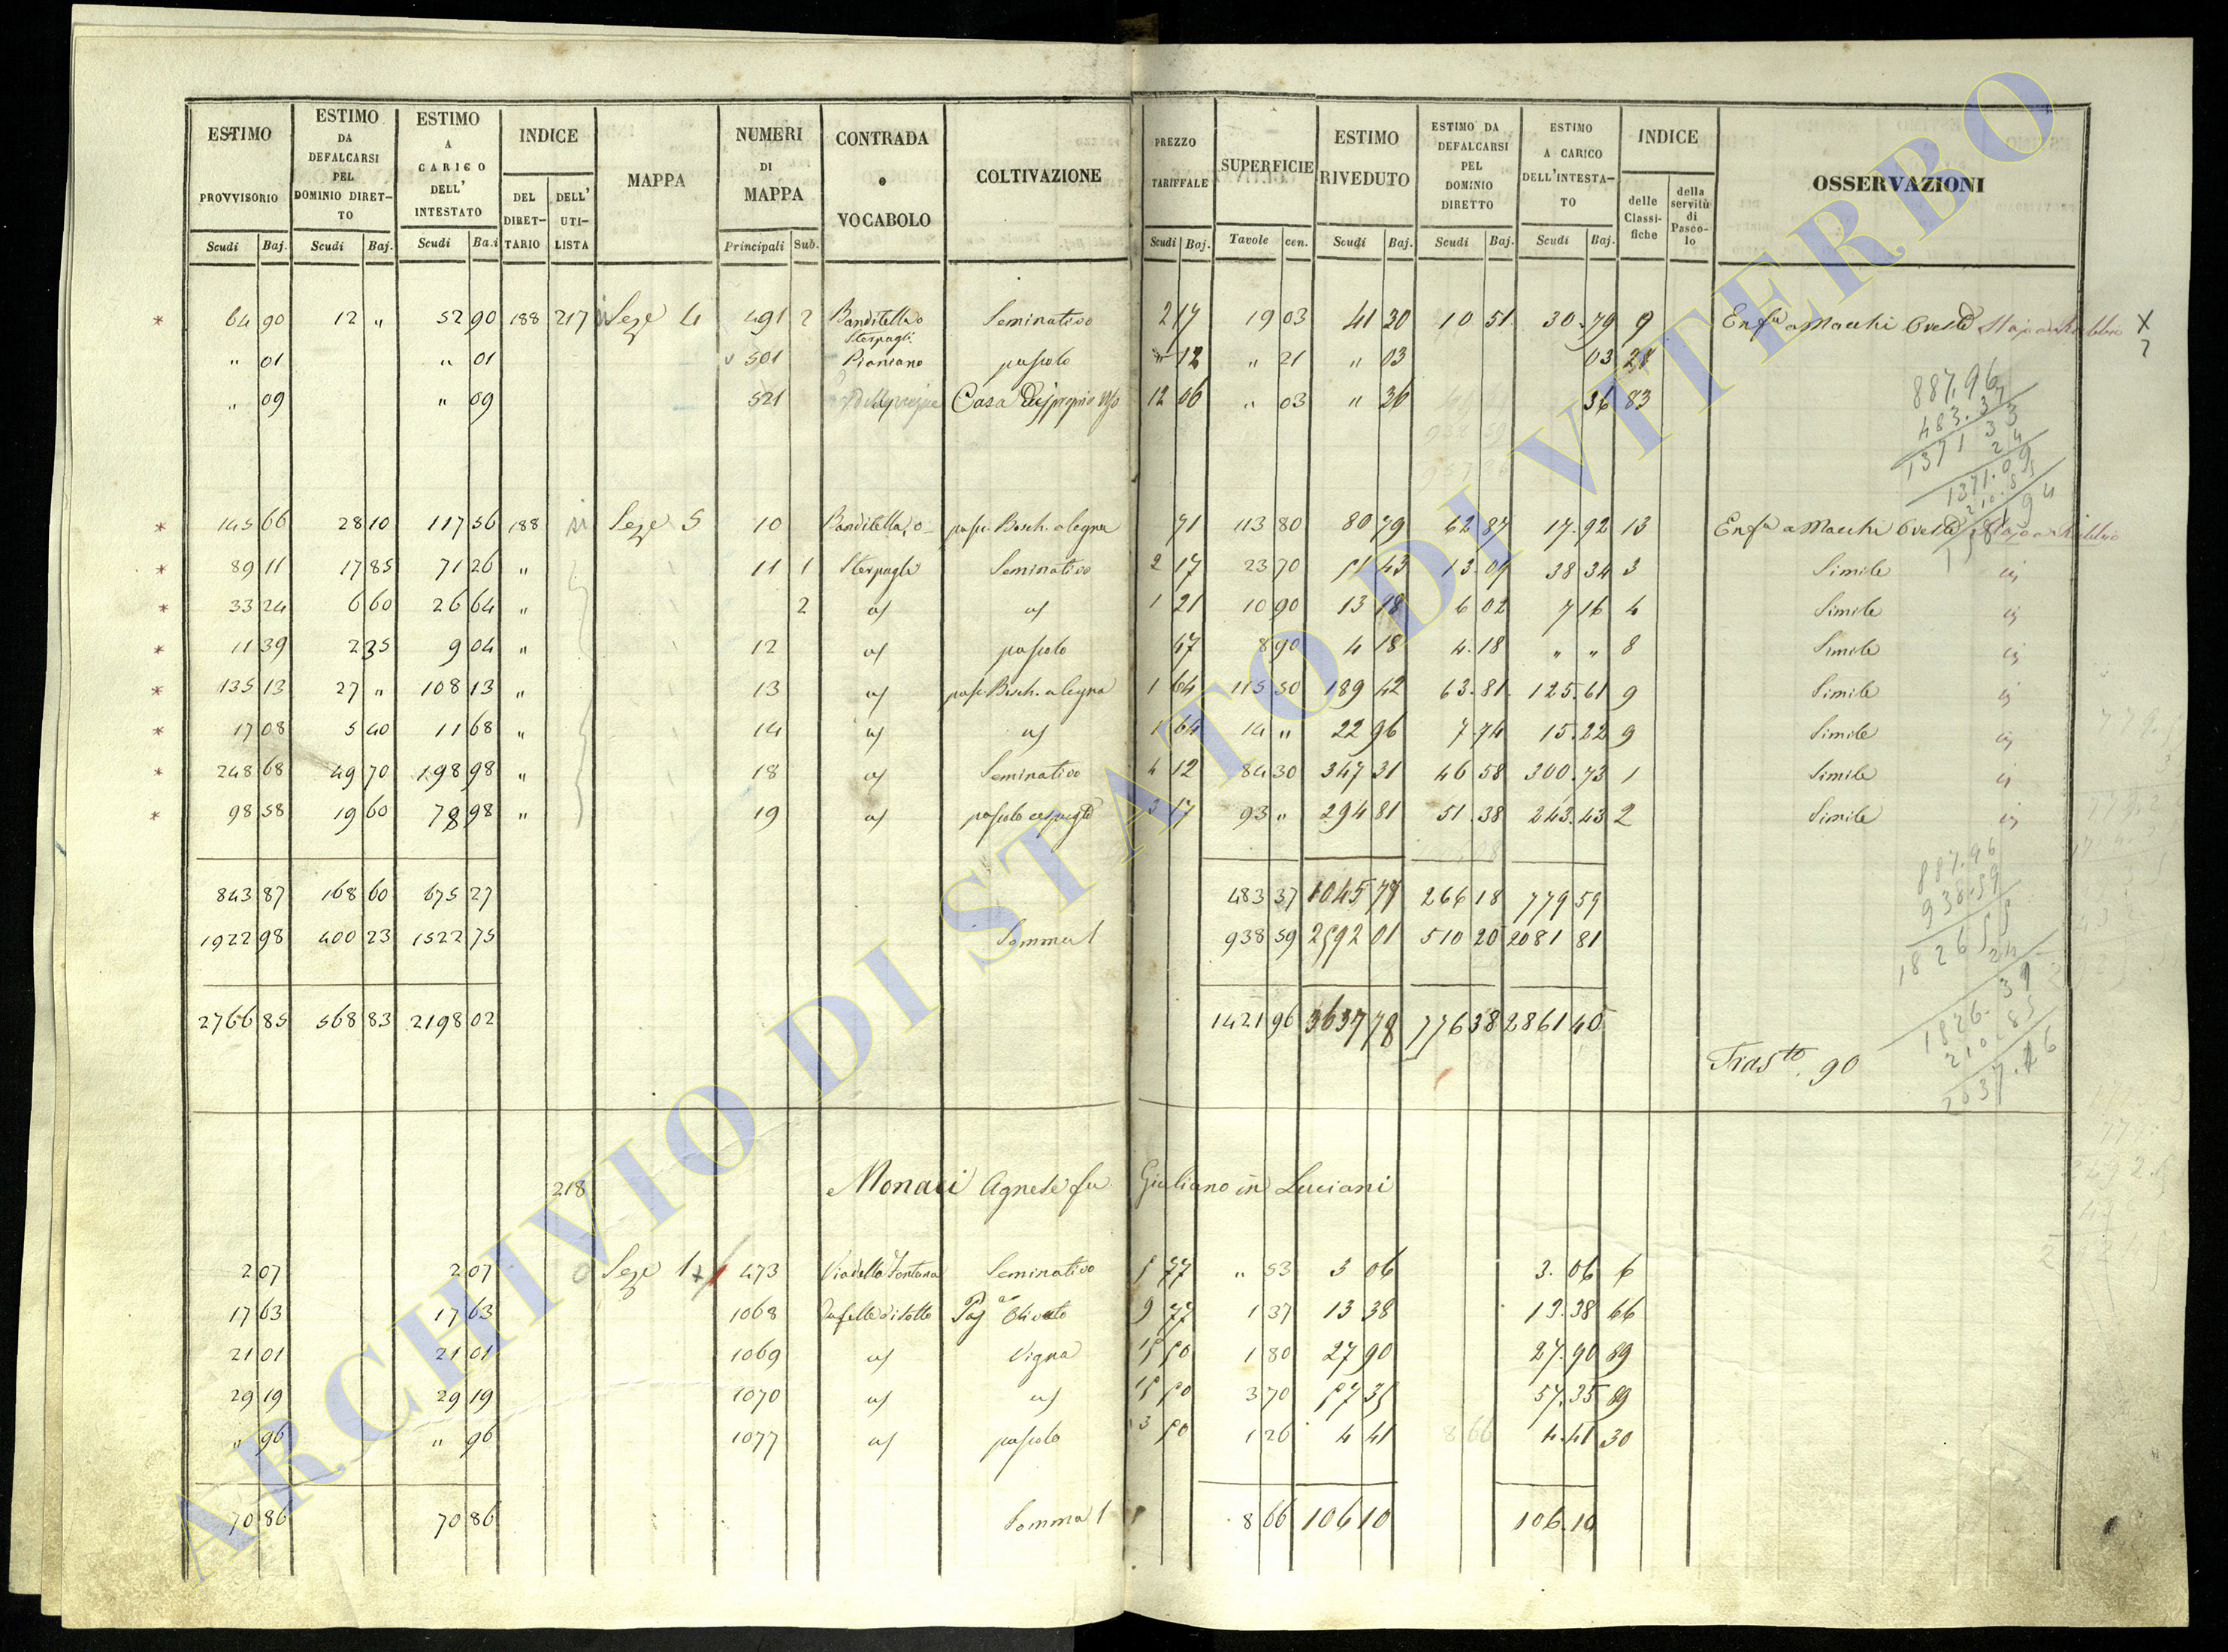 ESTIMO PROVVISORIO Scudi Baj.
ESTIMO DA DEFALCARSI PEL DOMINIO DIRET-TO Scudi Baj.
ESTIMO A CARICO DELL' INTESTATO Scudi Ba.i
INDICE DEL DIRET-TARIO DELL' UTI-LISTA
MAPPA
NUMERI DI MAPPA Principali Sub.
CONTRADA o VOCABOLO
COLTIVAZIONE
PREZZO TARIFFALE Scudi Baj.
SUPERFICIE Tavole cen.
ESTIMO RIVEDUTO Scudi Baj.
ESTIMO DA DEFALCARSI PEL DOMINIO DIRETTO Scudi Baj.
ESTIMO A CARICO DELL'INTESTA-TO Scudi Baj.
INDICE delle Classi-fiche della servitù di Pasco-lo
OSSERVAZIONI
* 64 90 12 " 52 90 188 217 Seze 4 491 2 Banditella o Sterpagli Seminativo 2 17 19 03 41 30 10 51 30.79 9 Enfa a Macchi Oreste X
" 01 " 01 501 Pianiano pascolo " 12 " 21 " 03 03
" 09 " 09 521 Casa di proprio uso 12 06 " 03 " 36 36 83
* 145 66 28 10 117 56 188 Seze 5 10 Banditella, o pasc. Bosch. a legna 71 113 80 80 79 62 87 17.92 13 Enfa a Macchi Oreste
* 89 11 17 85 71 26 " 11 1 Sterpaglie Seminativo 2 17 23 70 51 43 13.09 38 34 3 Simile
* 33 24 6 60 26 64 " 2 10 90 13 18 6 02 7 16 4 Simile
* 11 39 2 35 9 04 " 12 pascolo 47 8 90 4 18 4.18 " " 8 Simile
* 135 13 27 " 108 13 " 13 pasc. Bosch. a legna 1 64 115 50 189 42 63.81 125.61 9 Simile
* 17 08 5 40 11 68 " 14 1 64 14 " 22 96 7.74 15.22 9 Simile
* 248 68 49 70 198 98 " 18 Seminativo 4 12 84 30 347 31 46 58 300.73 1 Simile
* 98 58 19 60 78 98 " 19 3 17 93 " 294 81 51.38 243.43 2 Simile
843 87 168 60 675 27 483 37 1045 77 266 18 779 59
1922 98 400 23 1522 75 Somma 1 938 59 2592 01 510 20 2081 81
2766 85 568 83 2198 02 1421 96 3637 78 776 38 2861 40
Trasto. 90
218 Monaci Agnese fu Giuliano in Luciani
2 07 2 07 Seze 1 473 Via della Fontana Seminativo 5 77 " 53 3 06 3.06 6
17 63 17 63 1068 Olivato 9 77 1 37 13 38 13.38 66
21 01 21 01 1069 Vigna 15 50 1 80 27 90 27.90 89
29 19 29 19 1070 15 50 3 70 57 35 57.35 89
" 96 " 96 1077 pascolo 3 50 1 26 4 41 4.41 30
70 86 70 86 Somma 1 8 66 106 10 106.10
887.96
1371 33
887.96
938.59
ARCHIVIO DI STATO DI VITERBO